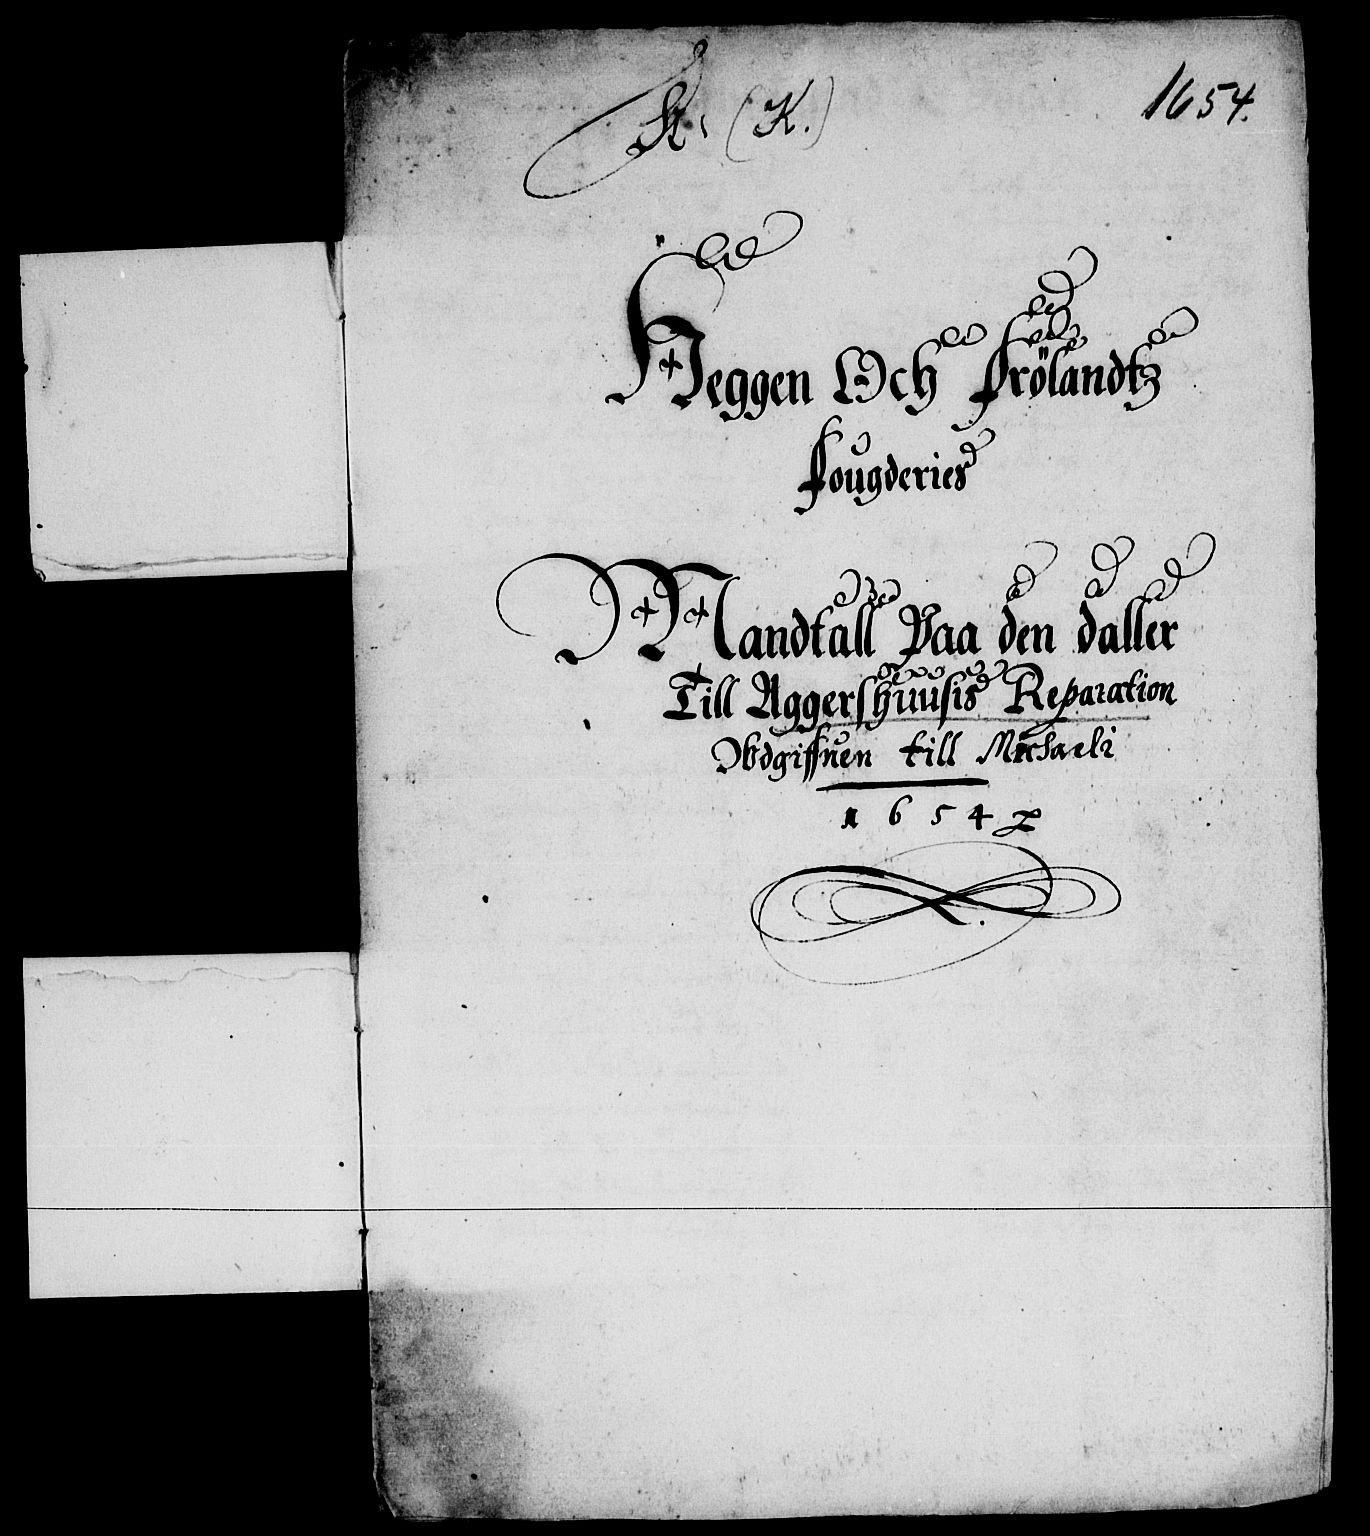 K. (K.)
1654.
Heggen Och Frölandtz
Fougderies
Mandtall Paa den daller
Till Aggershuusis Reparation
Udgiffuen till Michaeli
1654